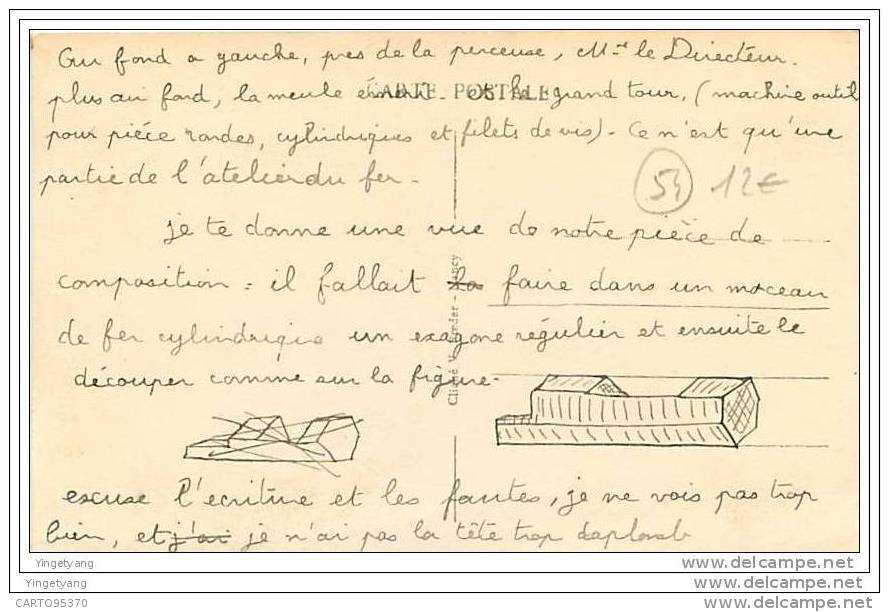 Au fond a gauche, pres de la perceuse, Mr le Directeur.
plus au fond, la meule émeri. et le grand tour, (machine outil
CARTE POSTALE
pour piéce rondes, cylindriques et filets de vis). Ce n'est qu'une
partie de l'atelier du fer.
54 12€
je te donne une vue de notre pièce de
composition : il fallait la faire dans un morceau
de fer cylindrique un exagone régulier et ensuite le
découper comme sur la figure.
Cliché - Nancy
excuse l'ecriture et les fautes, je ne vois pas trop
bien, et j'ai je n'ai pas la tête trop daplomb
Yingetyang
Yingetyang
CARTO95370
www.delcampe.net
www.delcampe.net
www.delcampe.net